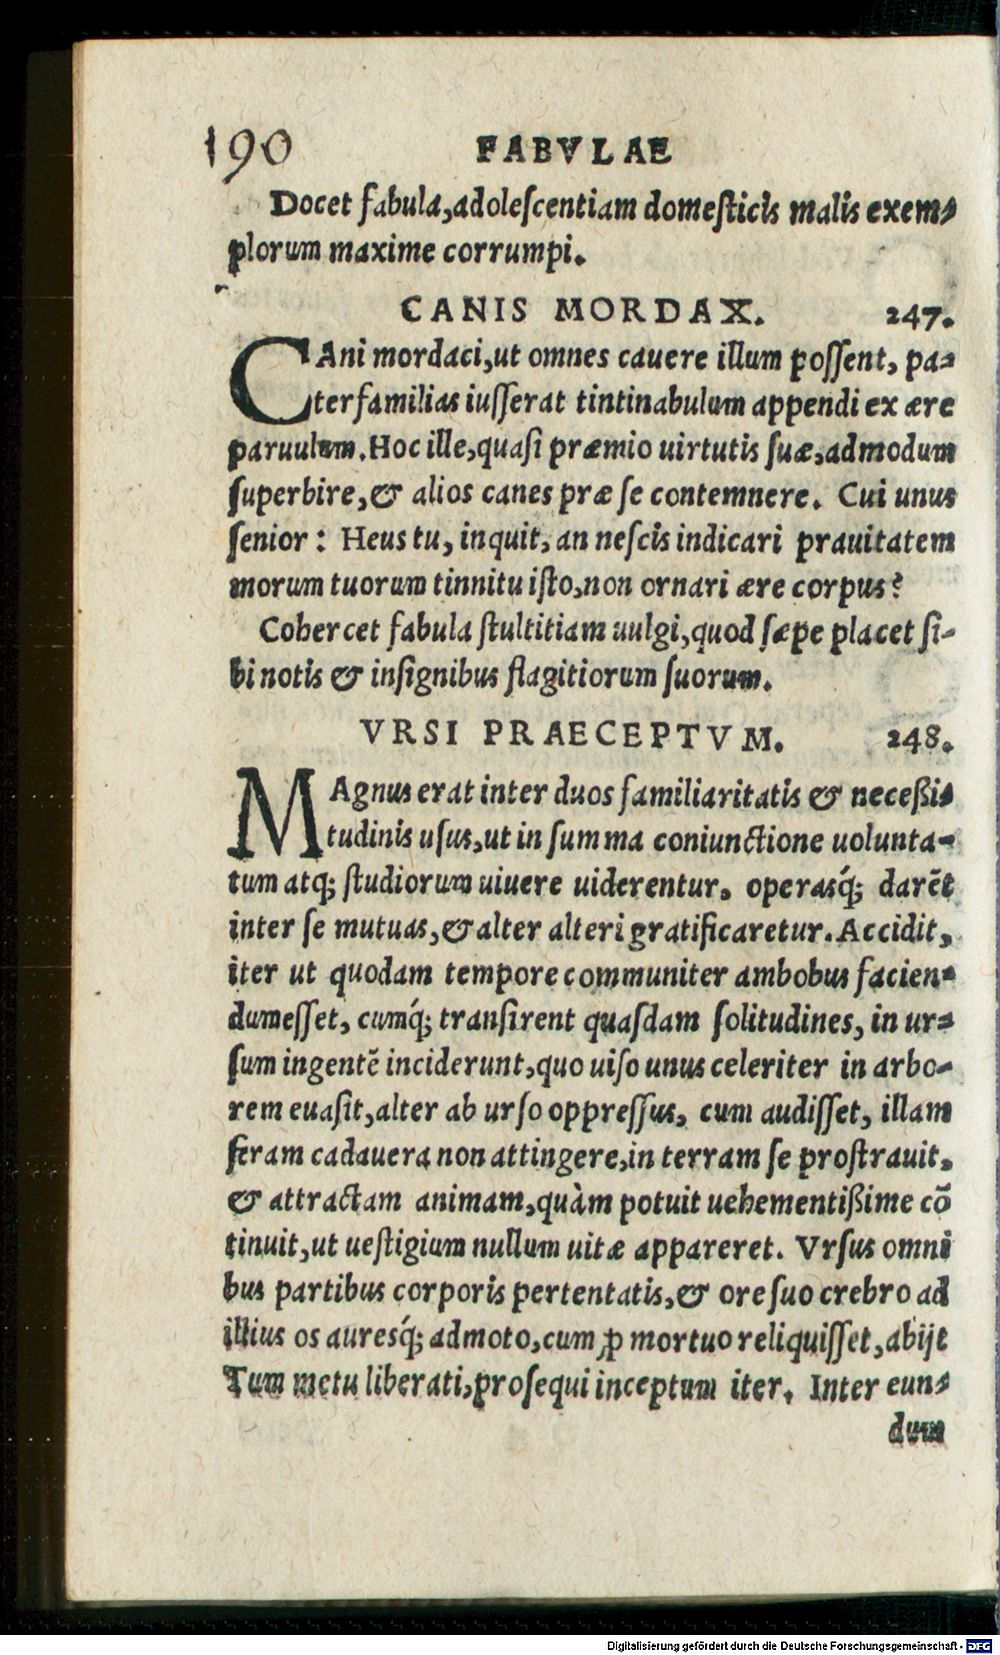 190 FABVLAE
Docet fabula, adoleſcentiam domeſticis malis exem-
plorum maxime corrumpi.
CANIS MORDAX. 247.
CAni mordaci, ut omnes cauere illum poſſent, pa-
terfamilias iuſſerat tintinabulum appendi ex ære
paruulum. Hoc ille, quaſi præmio uirtutis ſuæ, admodum
ſuperbire, & alios canes præ ſe contemnere. Cui unus
ſenior: Heus tu, inquit, an neſcis indicari prauitatem
morum tuorum tinnitu iſto, non ornari ære corpus?
Cohercet fabula ſtultitiam uulgi, quod ſæpe placet ſi-
bi notis & inſignibus flagitiorum ſuorum.
VRSI PRAECEPTVM. 248.
MAgnus erat inter duos familiaritatis & neceßi-
tudinis uſus, ut in ſumma coniunctione uolunta-
tum atq; ſtudiorum uiuere uiderentur. operasq́; darẽt
inter ſe mutuas, & alter alteri gratificaretur. Accidit,
iter ut quodam tempore communiter ambobus facien-
dumeſſet, cumq́; tranſirent quaſdam ſolitudines, in ur-
ſum ingentẽ inciderunt, quo uiſo unus celeriter in arbo-
rem euaſit, alter ab urſo oppreſſus, cum audiſſet, illam
feram cadauera non attingere, in terram ſe proſtrauit,
& attractam animam, quàm potuit uehementißime cõ
tinuit, ut ueſtigium nullum uitæ appareret. Vrſus omni
bus partibus corporis pertentatis, & ore ſuo crebro ad
illius os auresq́; admoto, cum ꝓ mortuo reliquiſſet, abijt
Tum metu liberati, proſequi inceptum iter. Inter eun-
dum
Digitalisierung gefördert durch die Deutsche Forschungsgemeinschaft - DFG